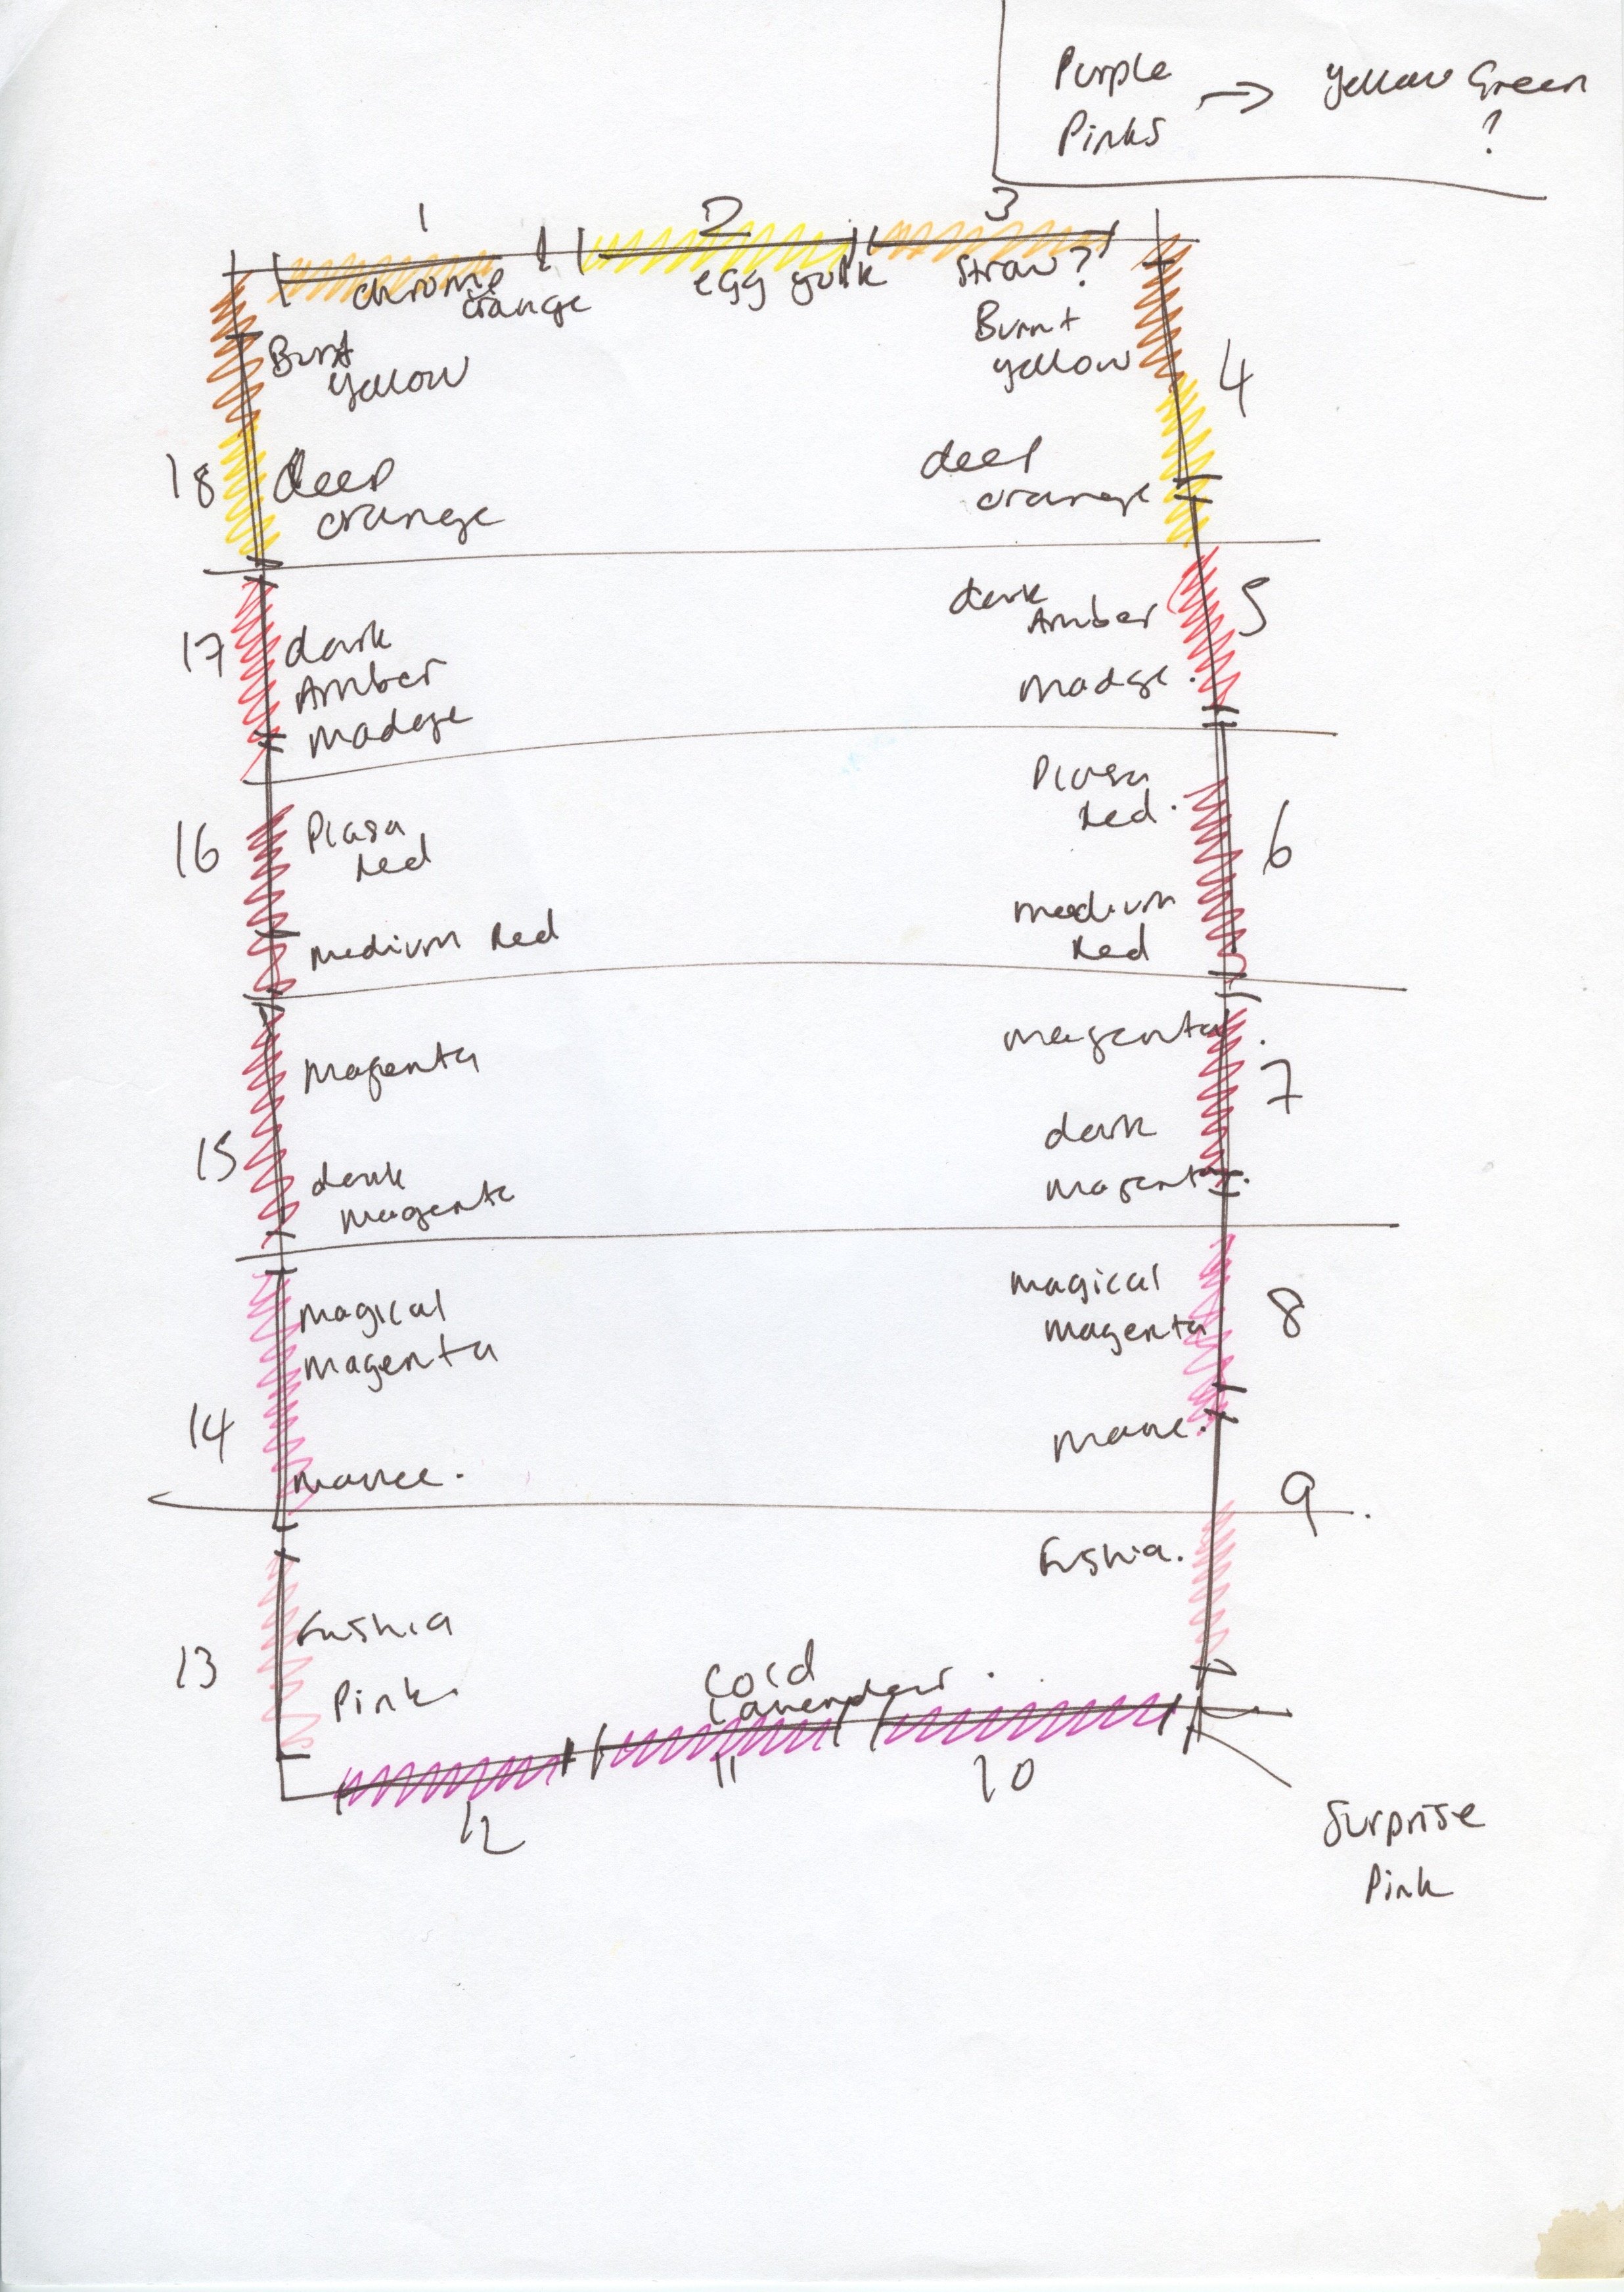 Purple
Pinks → Yellow Green
?
1 2 3
chrome
orange
egg yolk
straw?
Burnt
yellow
Burnt
yellow
4
18
deep
orange
deep
orange
17
dark
Amber
madge
dark
Amber
madge.
5
16
Plasa
Red
Plasa
Red.
6
medium Red
medium
Red
magenta
magenta.
7
15
dark
magenta
dark
magenta.
magical
magenta
magical
magenta
8
14
mauve.
mauve.
9
Fushia.
13
Fushia
Pink.
Cold
Lavender.
12
11
10
Surprise
Pink